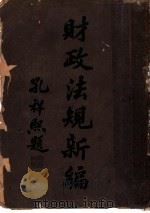 財政法規新編
孔祥熙題